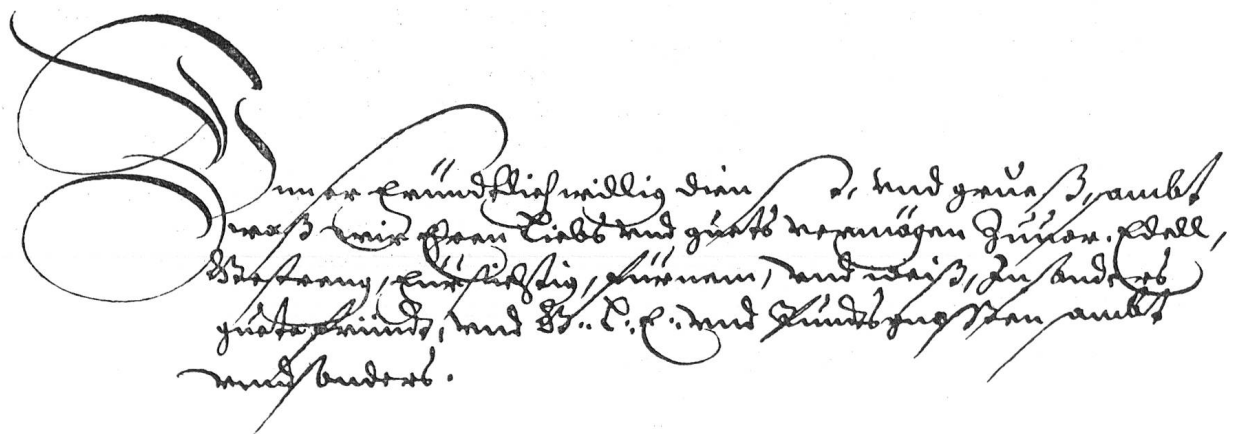 Unser fründtlich willig dienste, vnd grueß, sambt
waß wir Eren Liebs vnd guets vermögen Zuuor. Edell,
Gestreng, fürsichtig, fürnem, vnd weiß, Insonders
guete fründt, vnd G. L. E. vnd Pundtsgnossen sambt
vnd sonders.